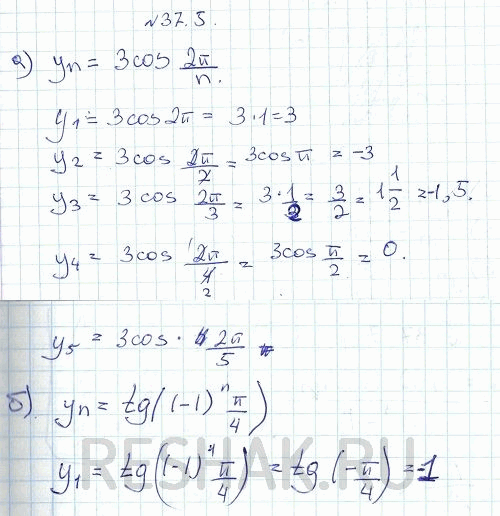 №37.5.
а) yn = 3cos 2π/n.
y1 = 3cos2π = 3·1=3
y2 = 3cos 2π/2 = 3cosπ = -3
y3 = 3cos 2π/3 = 3·1/2 = 3/2 = 1 1/2 = -1,5.
y4 = 3cos 2π/4 2 = 3cos π/2 = 0.
y5 = 3cos · 2π/5
б) yn = tg((-1)^n π/4)
y1 = tg((-1)^1 π/4) = tg(-π/4) = -1
RESHAK.RU